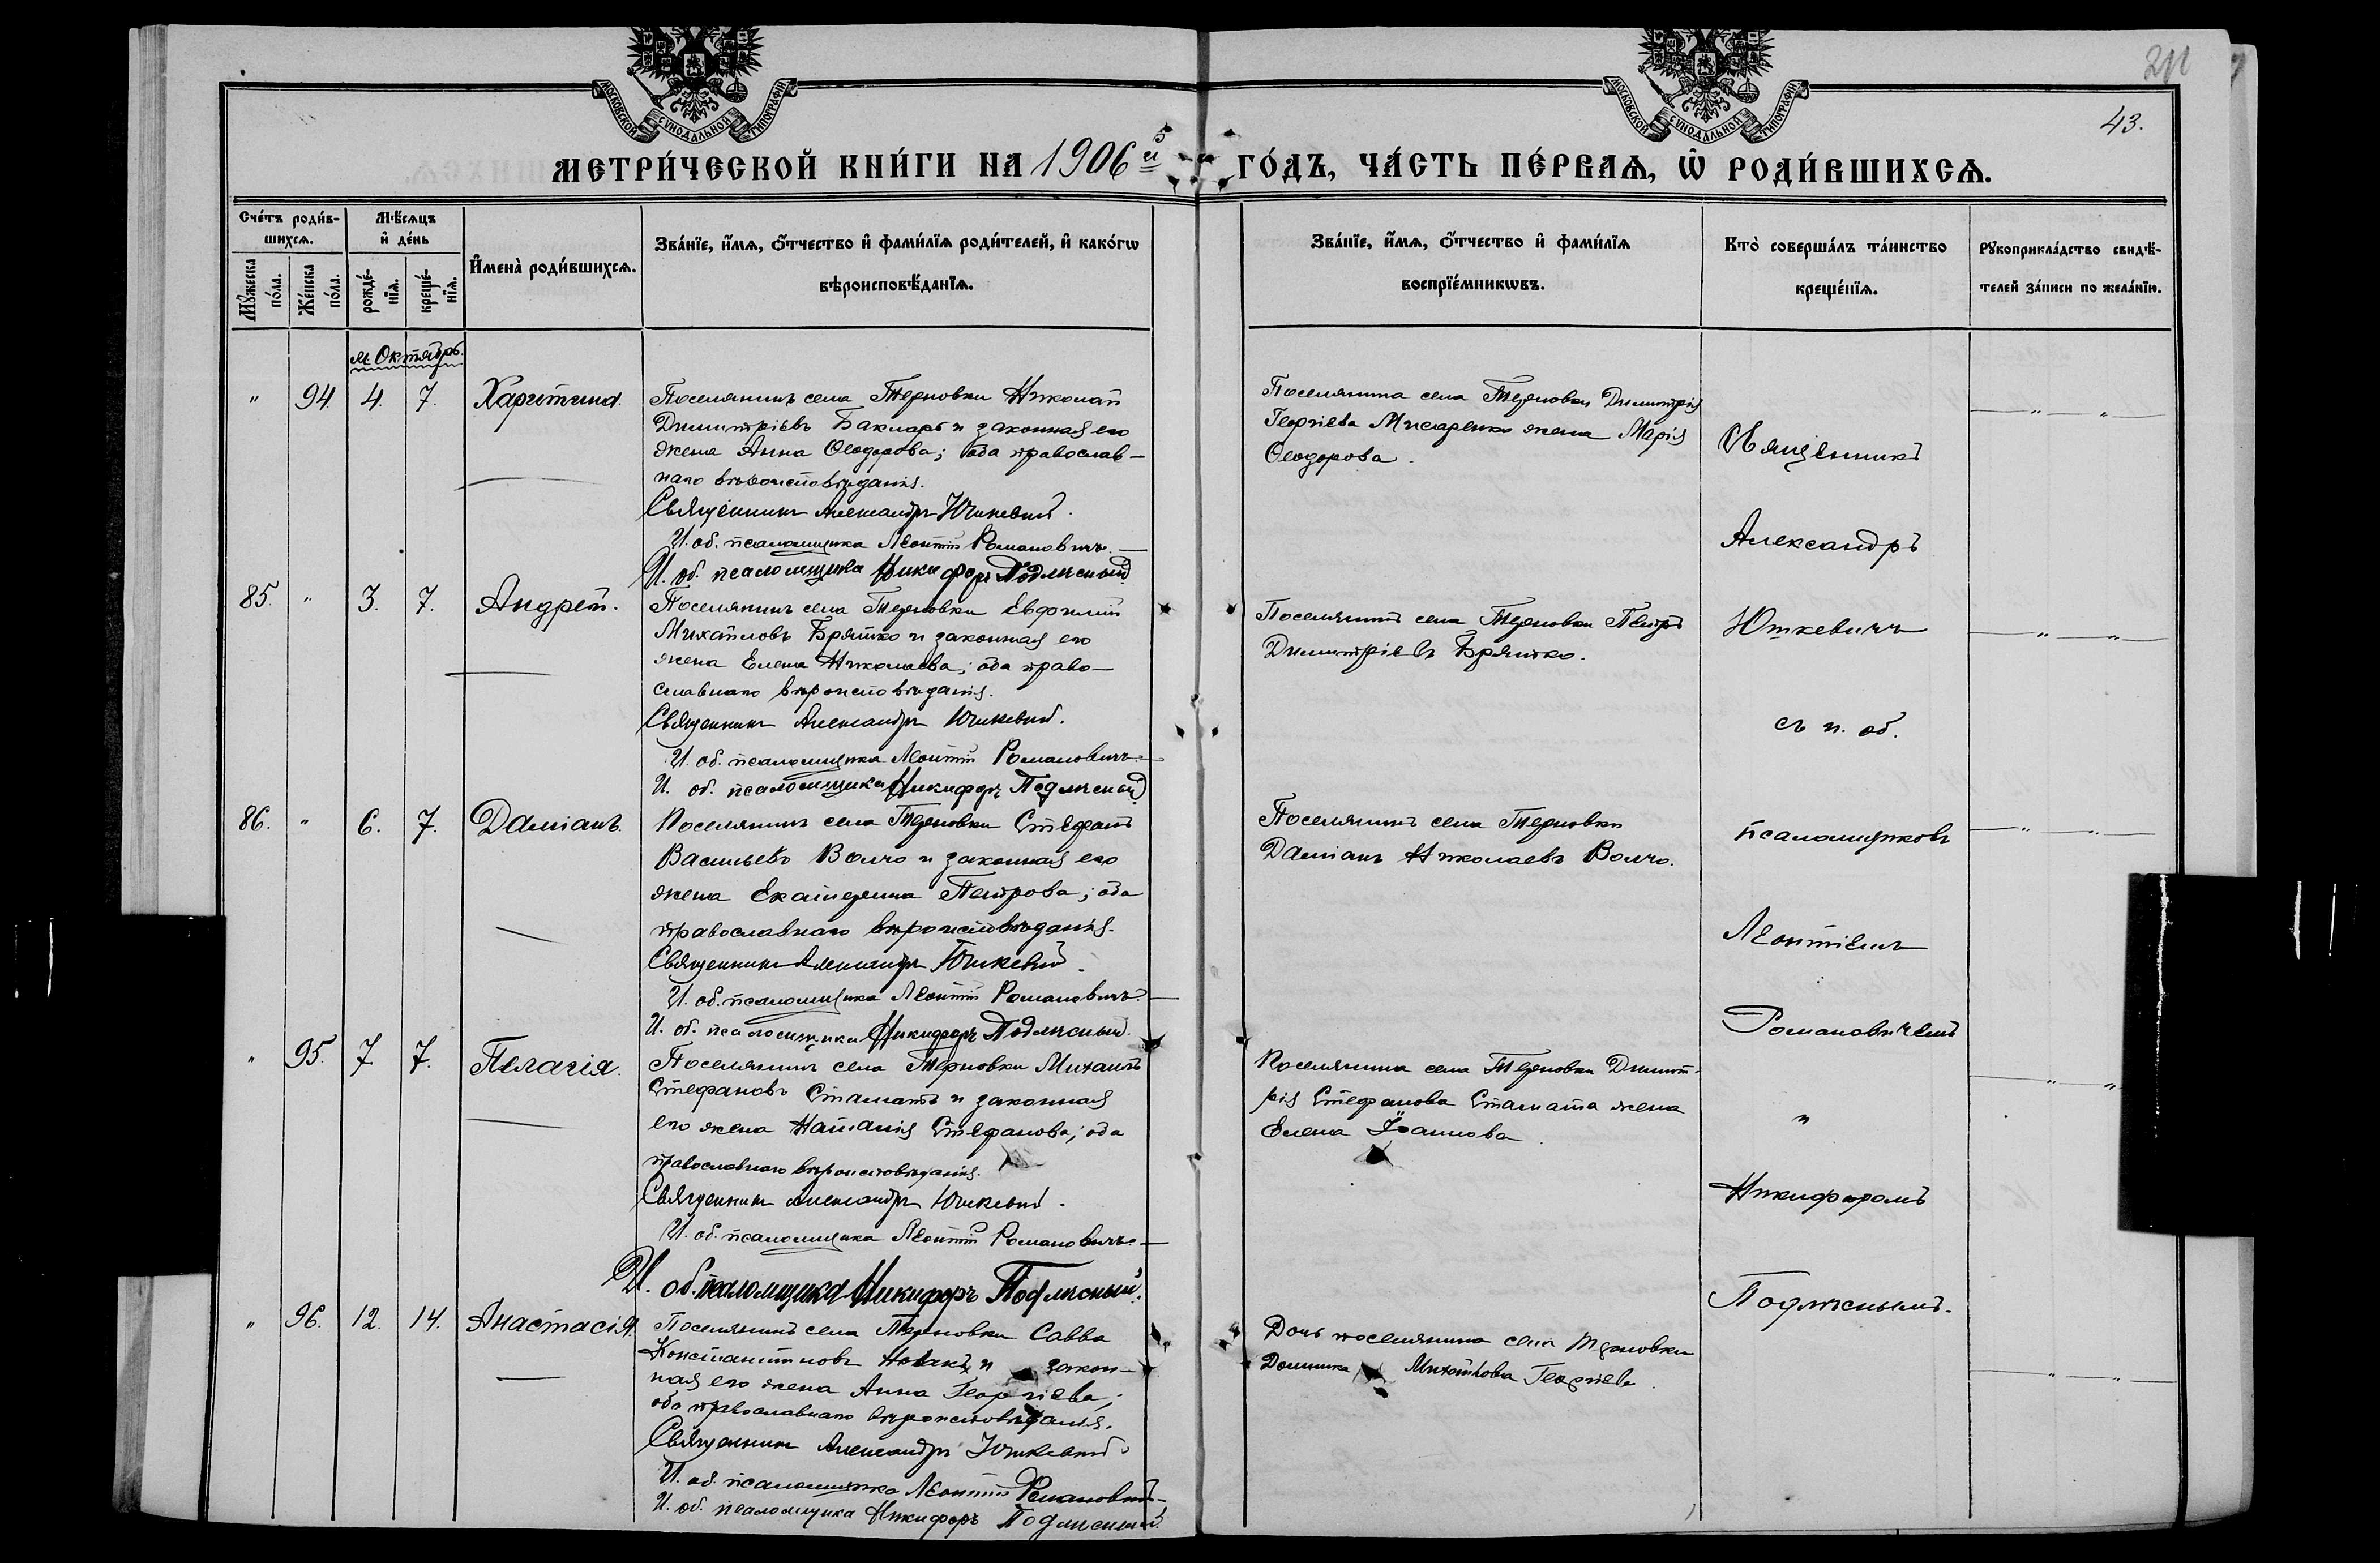 МОСКОВСКОЙ СѴНОДАЛЬНОЙ ТИПОГРАФІИ
МОСКОВСКОЙ СѴНОДАЛЬНОЙ ТИПОГРАФІИ
43.
МЕТРИ́ЧЕСКОЙ КНИ́ГИ НА 1906й ГО́ДЪ, ЧА́СТЬ ПЕ́РВАѦ, Ѡ҆ РОДИ́ВШИХСѦ.
Сче́тъ роди́в-
шихсѧ.
Мѣ́сѧцъ
и҆ де́нь
Мꙋ́жеска по́ла.
Же́нска по́ла.
рожде́-нїѧ.
креще́-нїѧ.
И҆мена̀ роди́вшихсѧ.
Зва́нїе, и҆́мѧ, ѻ҆́тчество и҆ фами́лїѧ роди́телей, и҆ како́гѡ
вѣроисповѣ́данїѧ.
Зва́нїе, и҆́мѧ, ѻ҆́тчество и҆ фами́лїѧ
воспрїе́мникѡвъ.
Кто̀ соверша́лъ та́инство
креще́нїѧ.
Рꙋкоприкла́дство свидѣ́-
телей за́писи по жела́нїю.
м. Октябрь.
" 94. 4. 7. Харитина.
Поселянинъ села Терновки Николай
Димитріевъ Бакларъ и законная его
жена Анна Ѳеодорова; оба православ-
наго вѣроисповѣданія.
Священникъ Александръ Юшкевичъ.
И. об. псаломщика Леонтій Романовичъ.
И. об. псаломщика Никифоръ Подлѣсный.
Поселянина села Терновки Димитрія
Георгіева жена Марія
Ѳеодорова.
85. " 3. 7. Андрей.
Поселянинъ села Терновки Евфимій
Михайловъ Брятко и законная его
жена Елена Николаева; оба право-
славнаго вѣроисповѣданія.
Священникъ Александръ Юшкевичъ.
И. об. псаломщика Леонтій Романовичъ.
И. об. псаломщика Никифоръ Подлѣсный
Поселянинъ села Терновки Петръ
Димитріевъ Брятко.
86. " 6. 7. Даміанъ.
Поселянинъ села Терновки Стефанъ
Васильевъ Волчо и законная его
жена Екатерина Петрова; оба
православнаго вѣроисповѣданія.
Священникъ Александръ Юшкевичъ.
И. об. псаломщика Леонтій Романовичъ.
И. об. псаломщика Никифоръ Подлѣсный.
Поселянинъ села Терновки
Даміанъ Николаевъ Волчо.
" 95. 7. 7. Пелагія.
Поселянинъ села Терновки Михаилъ
Стефановъ Стаматъ и законная
его жена Наталія Стефанова; оба
православнаго вѣроисповѣданія.
Священникъ Александръ Юшкевичъ.
И. об. псаломщика Леонтій Романовичъ.
И. об. псаломщика Никифоръ Подлѣсный.
Поселянина села Терновки Димит-
рія Стефанова Стамата жена
Елена Іоаннова.
" 96. 12. 14. Анастасія.
Поселянинъ села Терновки Савва
Константиновъ Новакъ и закон-
ная его жена Анна Георгіева;
оба православнаго вѣроисповѣданія.
Священникъ Александръ Юшкевичъ.
И. об. псаломщика Леонтій Романовичъ.
И. об. псаломщика Никифоръ Подлѣсный.
Дочь поселянина села Терновки
Домника Михайлова Георгіева.
Священникъ
Александръ
Юшкевичъ
съ и. об.
псаломщиковъ
Леонтіемъ
Романовичемъ
и
Никифоромъ
Подлѣснымъ.